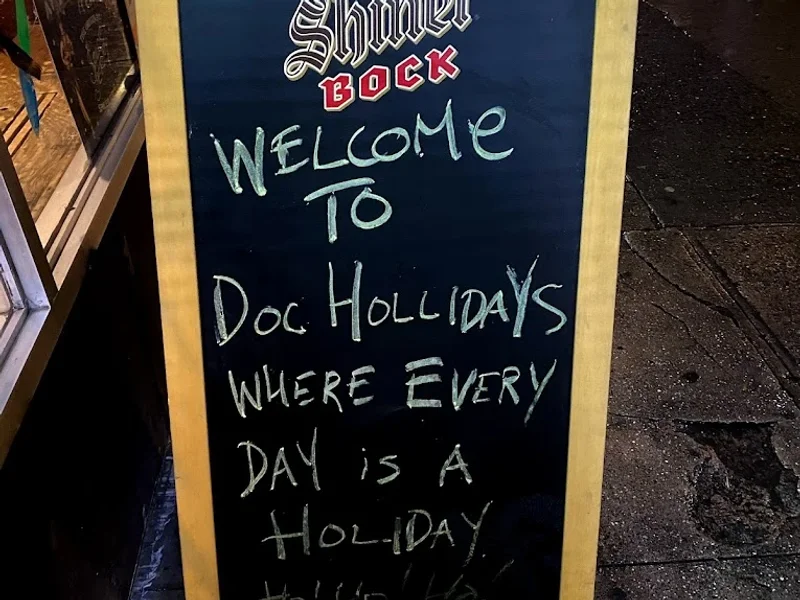 Shiner
BOCK
WELCOMe
TO
DOC HOLLIDAYS
WHERE EVERY
DAY is A
HOLIDAY